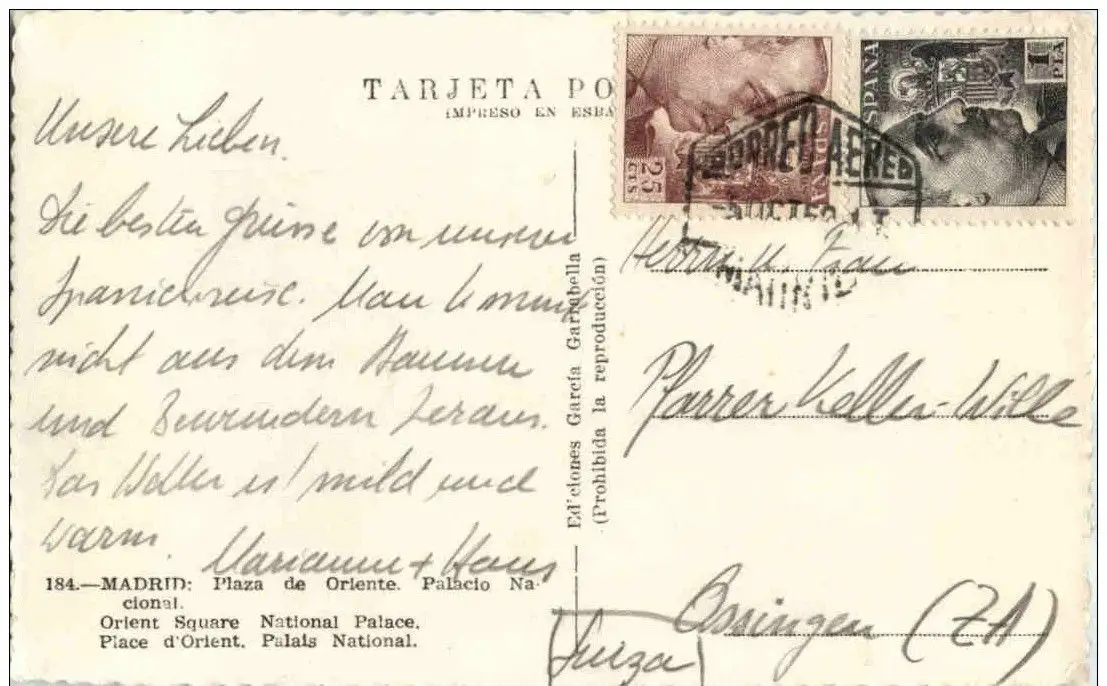 TARJETA PO
IMPRESO EN ESPA
Unsere Lieben.
Die besten Grüsse von unserer
Spanienreise. Man kommt
nicht aus dem Staunen
und Bewundern heraus.
Das Wetter ist mild und
warm.
Marianne + Hans
184.—MADRID: Plaza de Oriente. Palacio Na-
cional.
Orient Square National Palace.
Place d'Orient. Palais National.
Ediciones García Garrabella
(Prohibida la reproducción)
25 CTS
ESPAÑA
ESPAÑA
1 PTA
CORREO AEREO
MADRID
Herrn u. Frau
Pfarrer Keller-Wille
Ossingen (ZA)
Suiza